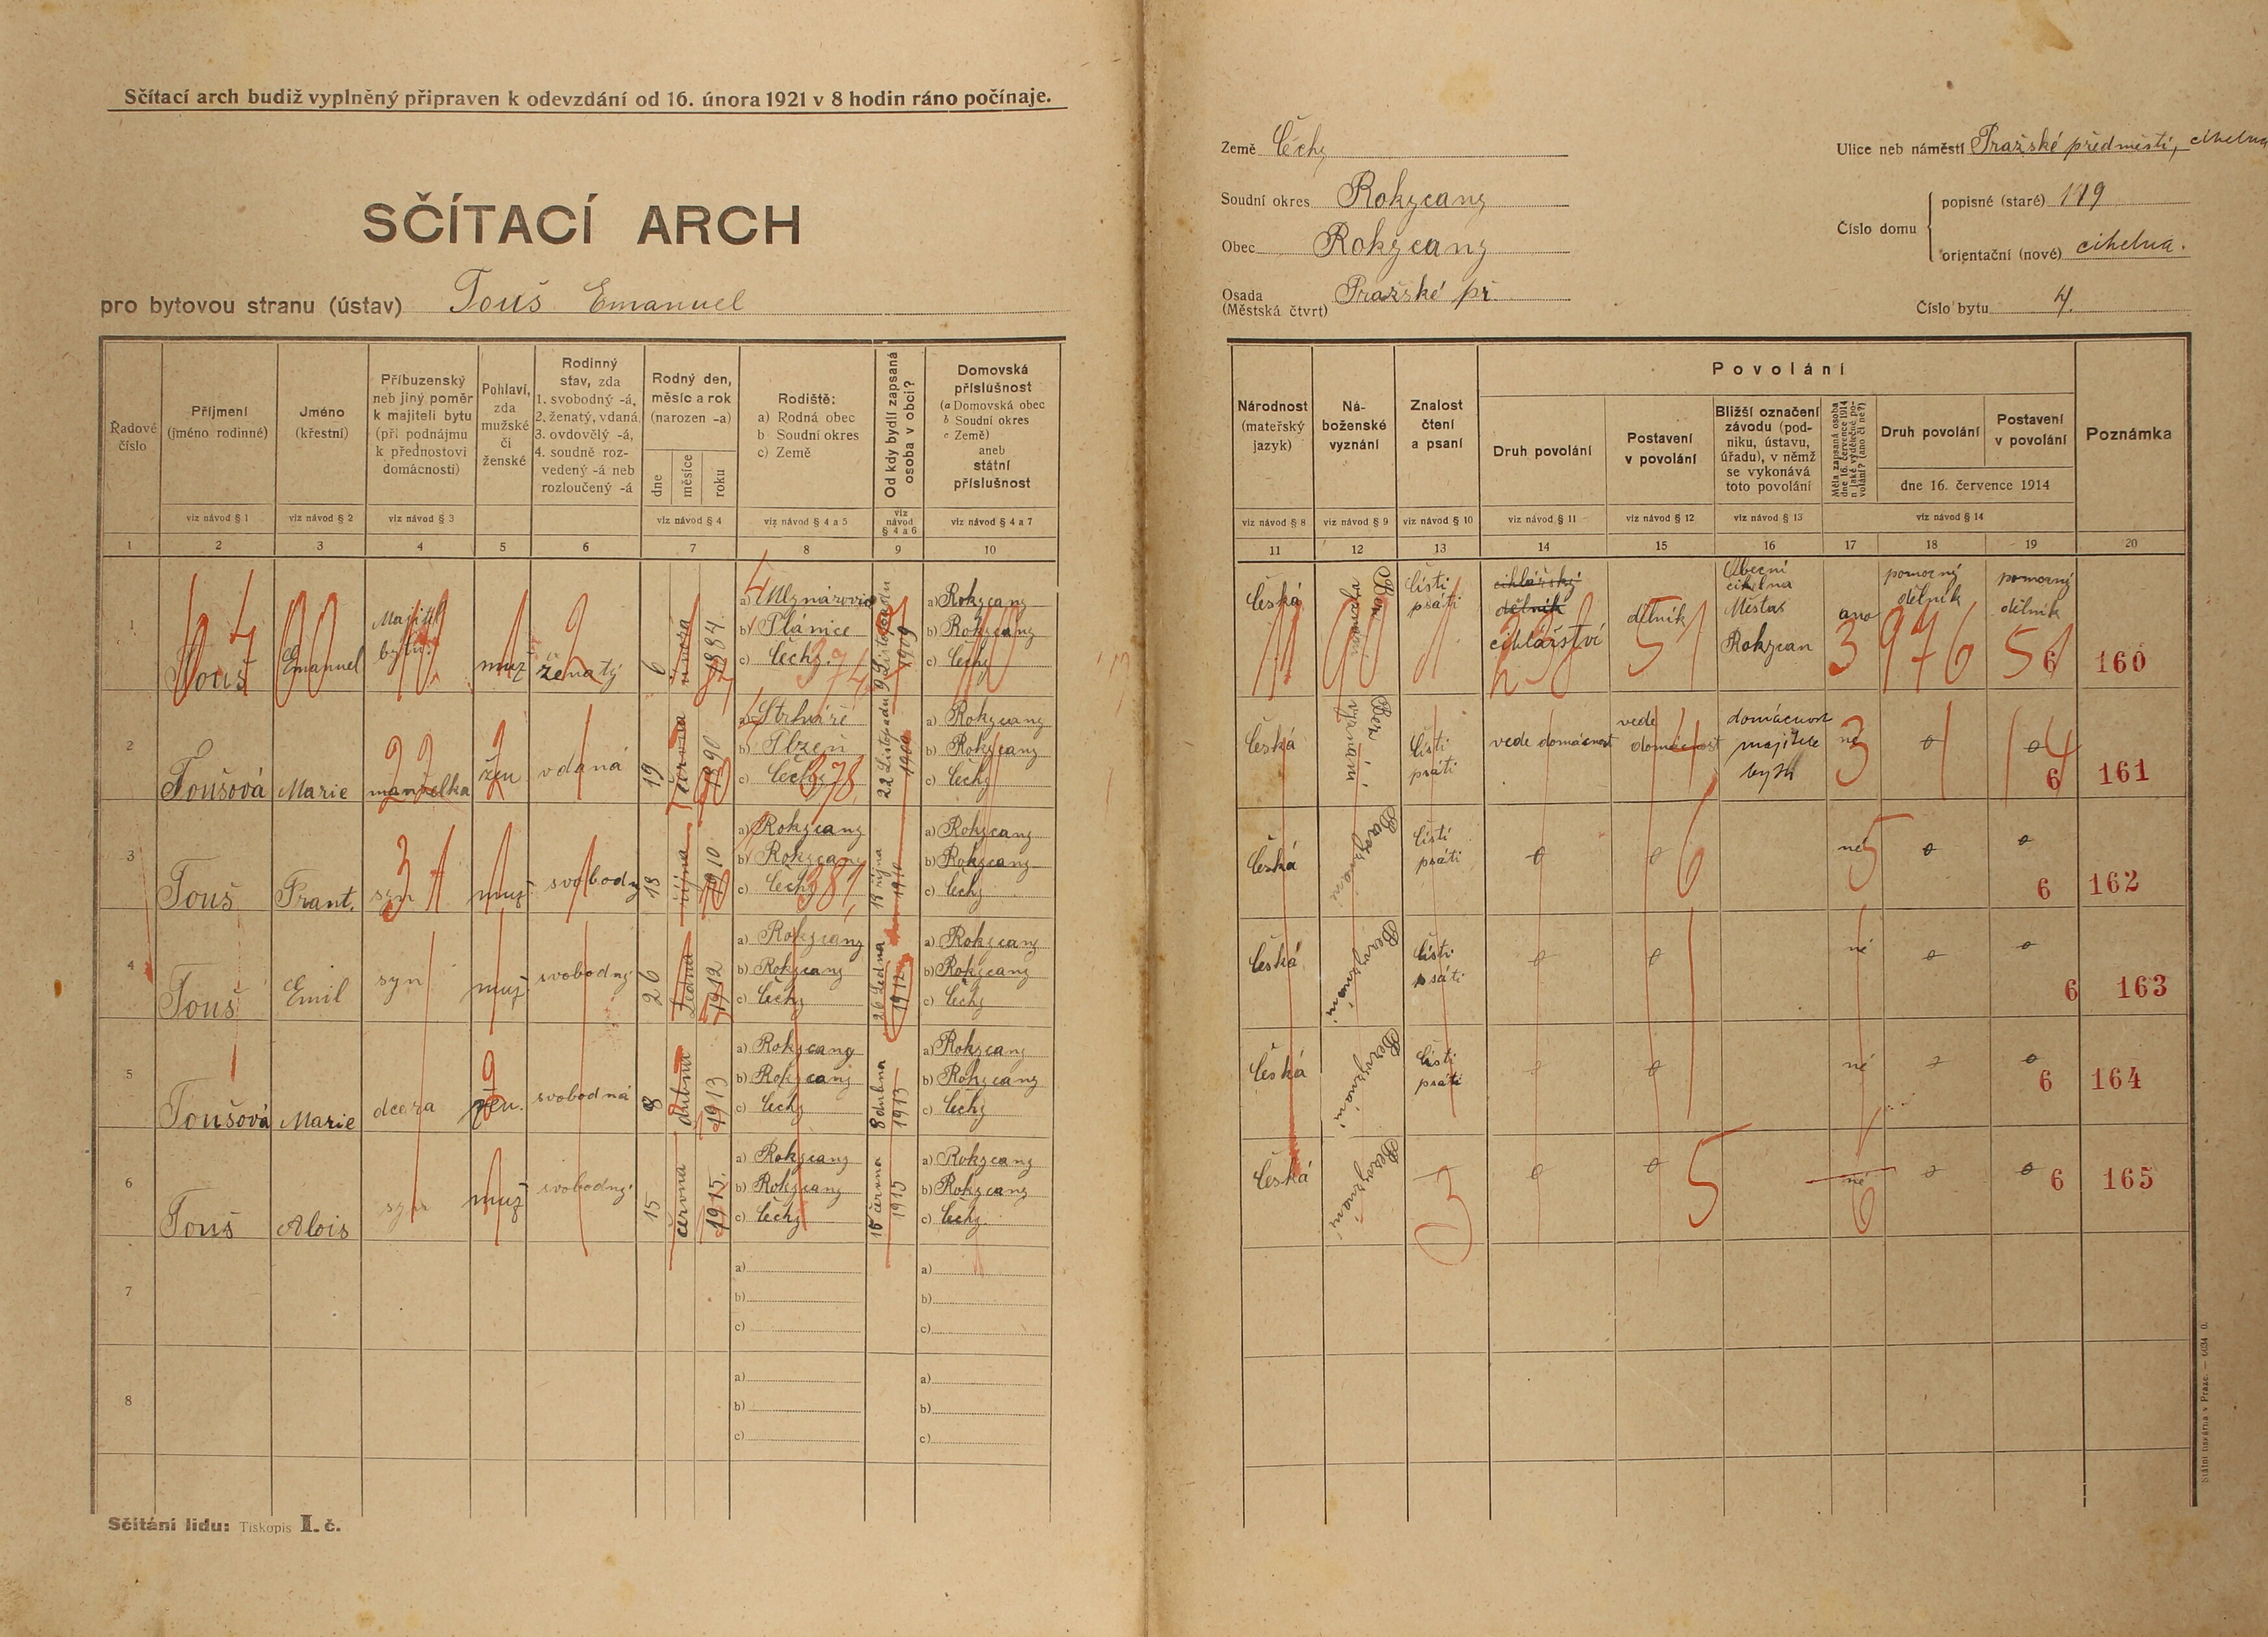 Sčítací arch budiž vyplněný připraven k odevzdání od 16. února 1921 v 8 hodin ráno počínaje.
SČÍTACÍ ARCH
pro bytovou stranu (ústav) Touš Emanuel
Řadové číslo
Příjmení (jméno rodinné)
Jméno (křestní)
Příbuzenský neb jiný poměr k majiteli bytu (při podnájmu k přednostovi domácnosti)
Pohlaví, zda mužské či ženské
Rodinný stav, zda 1. svobodný -á, 2. ženatý, vdaná 3. ovdovělý -á, 4. soudně rozvedený -á neb rozloučený -á
Rodný den, měsíc a rok (narozen -a)
dne měsíce roku
Rodiště: a) Rodná obec b) Soudní okres c) Země
Od kdy bydlí zapsaná osoba v obci?
Domovská příslušnost (a Domovská obec b Soudní okres c Země) aneb státní příslušnost
viz návod § 1 viz návod § 2 viz návod § 3 viz návod § 4 viz návod § 4 a 5 viz návod § 4 a 6 viz návod § 4 a 7
1 2 3 4 5 6 7 8 9 10
1 Touš Emanuel Majitel bytu. muž ženatý 6 února 1884. a) b) Plánice c) Čechy. 9 Listopadu 1909 a) Rokycany b) Rokycany c) Čechy
2 Toušová Marie manželka žen vdaná 19 června 1890 a) b) Plzeň c) Čechy 22 Listopadu 1909 a) Rokycany b) Rokycany c) Čechy
3 Touš Frant. syn muž svobodný 18 října 1910 a) Rokycany b) Rokycany c) Čechy 18 října 1910 a) Rokycany b) Rokycany c) Čechy
4 Touš Emil syn muž svobodný 26 Ledna 1912 a) Rokycany b) Rokycany c) Čechy 26 Ledna 1912 a) Rokycany b) Rokycany c) Čechy
5 Toušová Marie dcera žen. svobodná 8 dubna 1913 a) Rokycany b) Rokycany c) Čechy 8 dubna 1913 a) Rokycany b) Rokycany c) Čechy
6 Touš Alois syn muž svobodný 15 června 1915. a) Rokycany b) Rokycany c) Čechy 15 června 1915 a) Rokycany b) Rokycany c) Čechy
7 a) b) c) a) b) c)
8 a) b) c) a) b) c)
Sčítání lidu: Tiskopis I. č.
Země Čechy
Soudní okres Rokycany
Obec Rokycany
Osada (Městská čtvrť) Pražské př.
Ulice neb náměstí Pražské předměstí, cihelna
Číslo domu popisné (staré) 119
orientační (nové) cihelna.
Číslo bytu 4.
Národnost (mateřský jazyk)
Náboženské vyznání
Znalost čtení a psaní
Povolání
Druh povolání
Postavení v povolání
Bližší označení závodu (podniku, ústavu, úřadu), v němž se vykonává toto povolání
Měla zapsaná osoba dne 16. července 1914 nějaké výdělečné povolání? (ano či ne?)
Druh povolání
Postavení v povolání
dne 16. července 1914
Poznámka
viz návod § 8 viz návod § 9 viz návod § 10 viz návod § 11 viz návod § 12 viz návod § 13 viz návod § 14
11 12 13 14 15 16 17 18 19 20
česká Bez vyznání čísti psáti cihlářský dělník cihlářství dělník Obecní cihelna Města Rokycan ano pomocný dělník pomocný dělník 6 160
česká Bez vyznání čísti psáti vede domácnost vede domácnost domácnost majitele bytu ne 0 0 6 161
česká Bezvyznání čísti psáti 0 0 né 0 0 6 162
česká Bezvyznání čísti psáti 0 0 né 0 0 6 163
česká Bezvyznání čísti psáti 0 0 né 0 0 6 164
česká Bezvyznání 0 0 né 0 0 6 165
Státní tiskárna v Praze. — 6034 0.